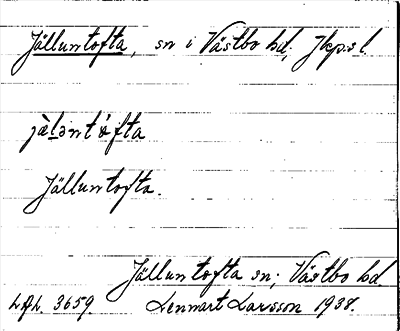 Jälluntofta, sn i Västbo hd, Jkp:s l.
Jälluntofta.
Jälluntofta sn; Västbo hd.
LAL 3659. Lennart Larsson 1938.